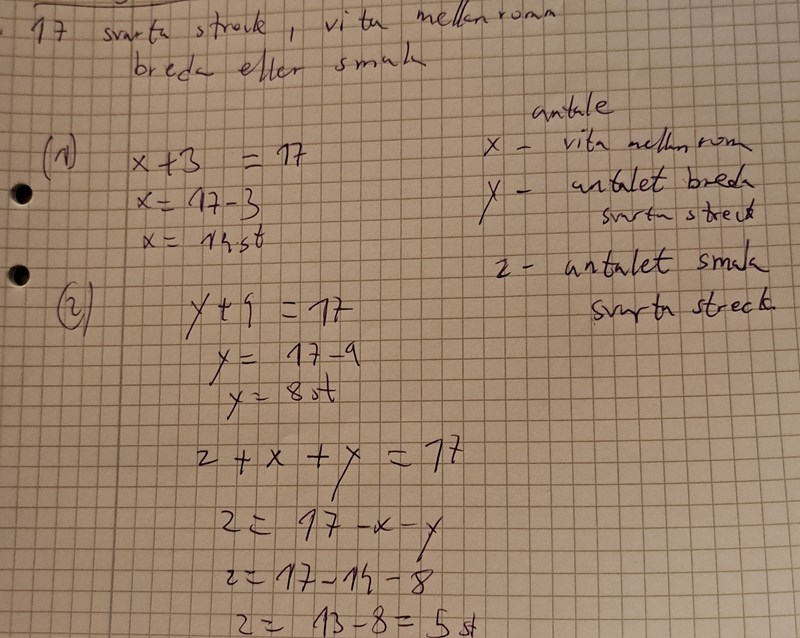 17 svarta streck, vita mellanrom
breda eller smala
(1) x + 3 = 17
x = 17 - 3
x = 14 st
(2) y + 9 = 17
y = 17 - 9
y = 8 st
z + x + y = 17
z = 17 - x - y
z = 17 - 14 - 8
z = 13 - 8 = 5 st
antale
x - vita mellanrom
y - antalet breda
svarta streck
z - antalet smala
svarta streck.